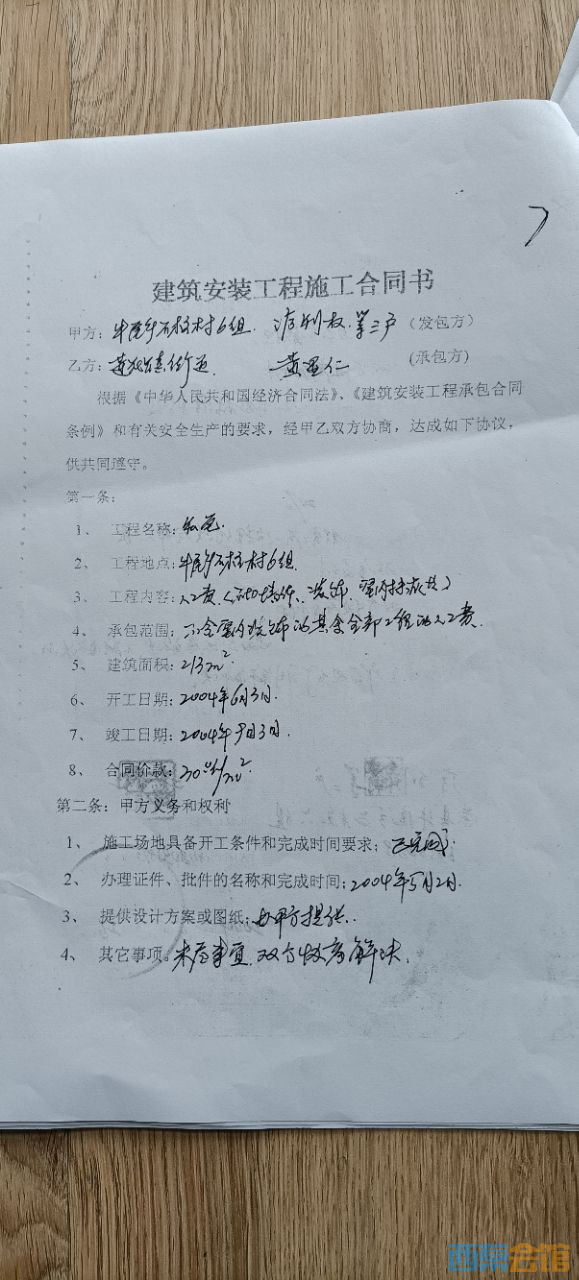 建筑安装工程施工合同书
甲方: 石柱村6组. 第三户 (发包方)
乙方: 黄 仁 (承包方)
根据《中华人民共和国经济合同法》、《建筑安装工程承包合同
条例》和有关安全生产的要求，经甲乙双方协商，达成如下协议，
供共同遵守。
第一条:
1、 工程名称:
2、 工程地点: 石柱村6组.
3、 工程内容: 人工费
4、 承包范围: 不含室内装饰的其余全部工程的人工费.
5、 建筑面积: 213m².
6、 开工日期: 2004年6月3日.
7、 竣工日期: 2004年 月3日.
8、 合同价款: /m².
第二条: 甲方义务和权利
1、 施工场地具备开工条件和完成时间要求: 已完成.
2、 办理证件、批件的名称和完成时间: 2004年5月2日.
3、 提供设计方案或图纸: 由甲方提供.
4、 其它事项: 未尽事宜, 双方协商解决.
西京会馆